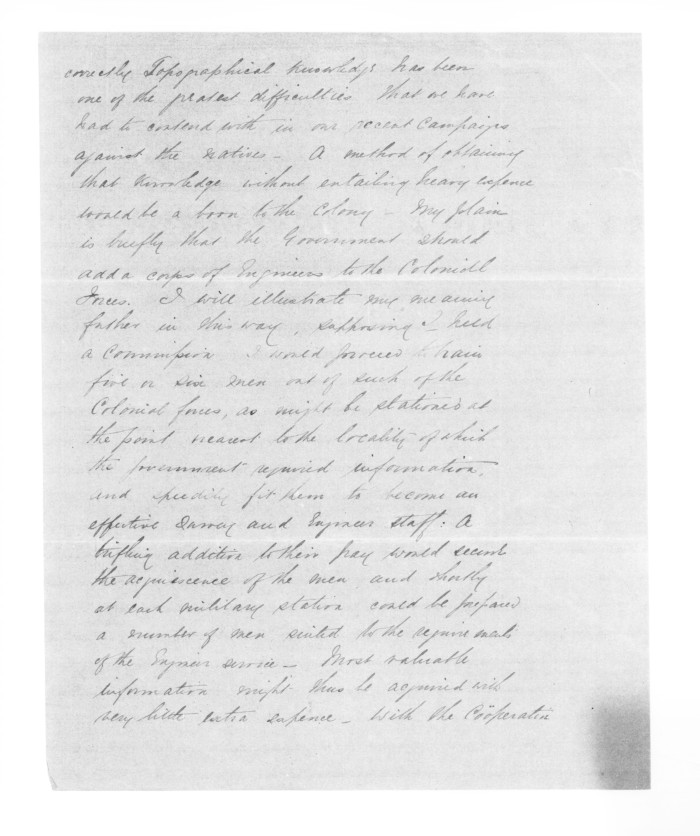 correctly Topographical Knowledge has been
one of the greatest difficulties that we have
had to contend with in our recent Campaigns
against the Natives – A method of obtaining
that Knowledge without entailing heavy expence
would be a boon to the Colony – My plan
is briefly that the Government should
add a corps of Engineers to the Colonial
Forces. I will illustrate my meaning
further in this way, supposing I held
a Commission I would proceed to train
five or six men out of such of the
Colonial forces, as might be stationed at
the point nearest to the locality of which
the government required information,
and speedily fit them to become an
effective Survey and Engineer staff: A
trifling addition to their pay would secure
the acquiescence of the men and shortly
at each military station could be prepared
a number of men suited to the requirements
of the Engineer service – Most valuable
information might thus be acquired with
very little extra expence – With the Coöperation